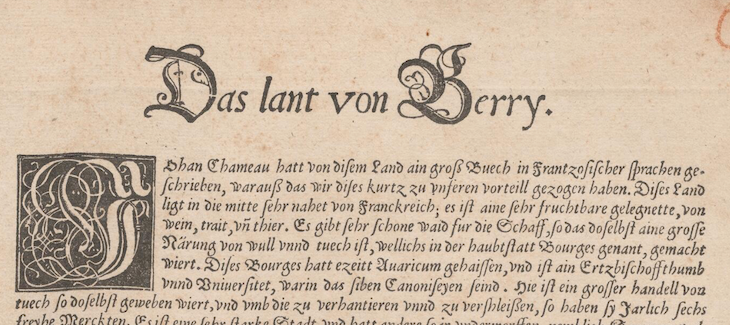 Das lant von Berry.
Johan Chameau hatt von disem Land ain groß Buech in Frantzosischer sprachen ge-
schrieben, warauß das wir dises kurtz zu vnseren vorteill gezogen haben. Dises Land
ligt in die mitte sehr nahet von Franckreich; es ist aine sehr fruchtbare gelegnette, von
wein, trait, vñ thier. Es gibt sehr schone waid fur die Schaff, so das doselbst aine grosse
Närung von wull vnnd tuech ist, wellichs in der haubtstatt Bourges genant, gemacht
wiert. Dises Bourges hatt ezeitt Auaricum gehaissen, vnd ist ain Ertzbischoffthumb
vnnd Vniuersitet, warin das siben Canoniseyen seind. Hie ist ein grosser handell von
tuech so doselbst geweben wiert, vnd vmb die zu verhantieren vnnd zu vershleißen, so haben sy Jarlich sechs
freyhe Merckten. Es ist eine sehr starke Stadt, vnd hatt